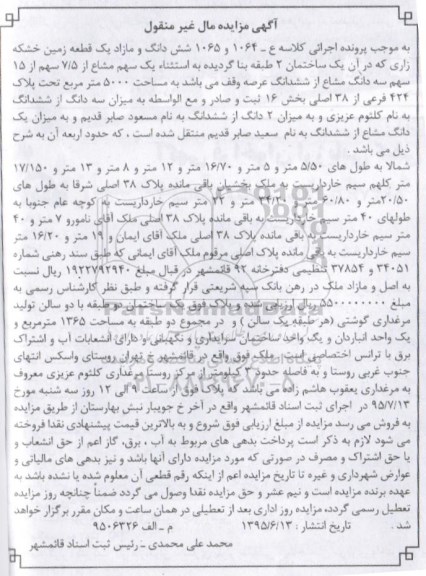 آگهی مزایده مال غیر منقول
به موجب پرونده اجرائی کلاسه ع ـ ۱۰۶۴ و ۱۰۶۵ شش دانگ و مازاد یک قطعه زمین خشکه
زاری که در آن یک ساختمان ۲ طبقه بنا گردیده به استثناء یک سهم مشاع از ۷/۵ سهم از ۱۵
سهم سه دانگ مشاع از ششدانگ عرصه وقف می باشد به مساحت ۵۰۰۰ متر مربع تحت پلاک
۴۲۴ فرعی از ۳۸ اصلی بخش ۱۶ ثبت و صادر و مع الواسطه به میزان سه دانگ از ششدانگ
به نام کلثوم عزیزی و به میزان ۲ دانگ از ششدانگ به نام مسعود صابر قدیم و به میزان یک
دانگ مشاع از ششدانگ به نام سعید صابر قدیم منتقل شده است ، که حدود اربعه آن به شرح
ذیل می باشد .
شمالا به طول های ۵/۵۰ متر و ۵ متر و ۱۶/۷۰ متر و ۱۲ متر و ۸ متر و ۱۳ متر و ۱۷/۱۵۰
متر کلهم سیم خارداریست به ملک باقی مانده پلاک ۳۸ اصلی شرقا به طول های
۲۰/۵۰متر و ۶۰/۸۰ متر و متر و ۲۲ متر سیم خارداریست به کوچه عام جنوبا به
طولهای ۴۰ متر سیم خارداریست به باقی مانده پلاک ۳۸ اصلی ملک آقای نامورو ۷ متر و ۴۰
متر سیم خارداریست به باقی مانده پلاک ۳۸ اصلی ملک آقای ایمان و ۱۹ متر و ۱۶/۲۰ متر
سیم خارداریست به باقی مانده پلاک اصلی مرقوم ملک آقای ایمانی که طبق سند رهنی شماره
۳۴۰۵۱ و ۳۷۸۵۴ تنظیمی دفترخانه ۹۲ قائمشهر در قبال مبلغ ۱۹۲۲۷۹۲۹۴۰ ریال نسبت
به اصل و مازاد ملک در رهن بانک سپه شریعتی قرار گرفته و طبق نظر کارشناس رسمی به
مبلغ ۵۵۰۰۰۰۰۰۰۰ ریال ارزیابی شده و پلاک فوق یک ساختمان دو طبقه با دو سالن تولید
مرغداری گوشتی (هر طبقه یک سالن ) و در مجموع دو طبقه به مساحت ۱۳۶۵ مترمربع و
یک واحد انباردان و یک واحد ساختمان سرایداری و نگهبانی و دارای انشعابات آب و اشتراک
برق با ترانس اختصاصی است . ملک فوق واقع در قائمشهر خ تهران روستای واسکس انتهای
جنوب غربی روستا و به فاصله حدود ۳ کیلومتر از مرکز روستا مرغداری کلثوم عزیزی معروف
به مرغداری یعقوب هاشم زاده می باشد که پلاک فوق از ساعت ۹ الی ۱۲ روز سه شنبه مورخ
۹۵/۷/۱۳ در اجرای ثبت اسناد قائمشهر واقع در آخر خ جویبار نبش بهارستان از طریق مزایده
به فروش می رسد مزایده از مبلغ ارزیابی فوق شروع و به بالاترین قیمت پیشنهادی نقدا فروخته
می شود لازم به ذکر است پرداخت بدهی های مربوط به آب ، برق، گاز اعم از حق انشعاب و
یا حق اشتراک و مصرف در صورتی که مورد مزایده دارای آنها باشد و نیز بدهی های مالیاتی و
عوارض شهرداری و غیره تا تاریخ مزایده اعم از اینکه رقم قطعی آن معلوم شده یا نشده باشد به
عهده برنده مزایده است و نیم عشر و حق مزایده نقدا وصول می گردد ضمناً چنانچه روز مزایده
تعطیل رسمی گردد، مزایده روز اداری بعد از تعطیلی در همان ساعت و مکان مقرر برگزار خواهد
شد . تاریخ انتشار : ۱۳۹۵/۶/۱۳ م ـ الف ۹۵۰۶۳۲۶
محمد علی محمدی ـ رئیس ثبت اسناد قائمشهر